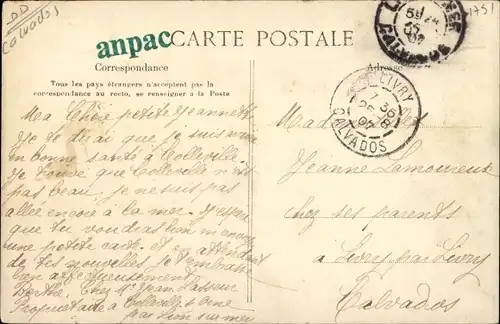 DD
Calvados
1751
anpac
CARTE POSTALE
Correspondance
Adresse
Tous les pays étrangers n'acceptent pas la
correspondance au recto, se renseigner à la Poste
CALVADOS
LIVRY
CALVADOS
Ma Chère petite Jeannette
Je te dirai que je suis arrivée
en bonne santé à Colleville.
Je trouve que Colleville n'est
pas beau, je ne suis pas
allée encore à la mer. J'espère
que tu voudras bien m'envoyer
une petite carte. et en attendant
de tes nouvelles je t'embrasse
bien affectueusement
Berthe, Chez Mr Jean Lasseur
Propriétaire à Colleville s Orne
par Lion sur mer
Jeanne Lamoureux
chez ses parents
à Livry par Livry
Calvados